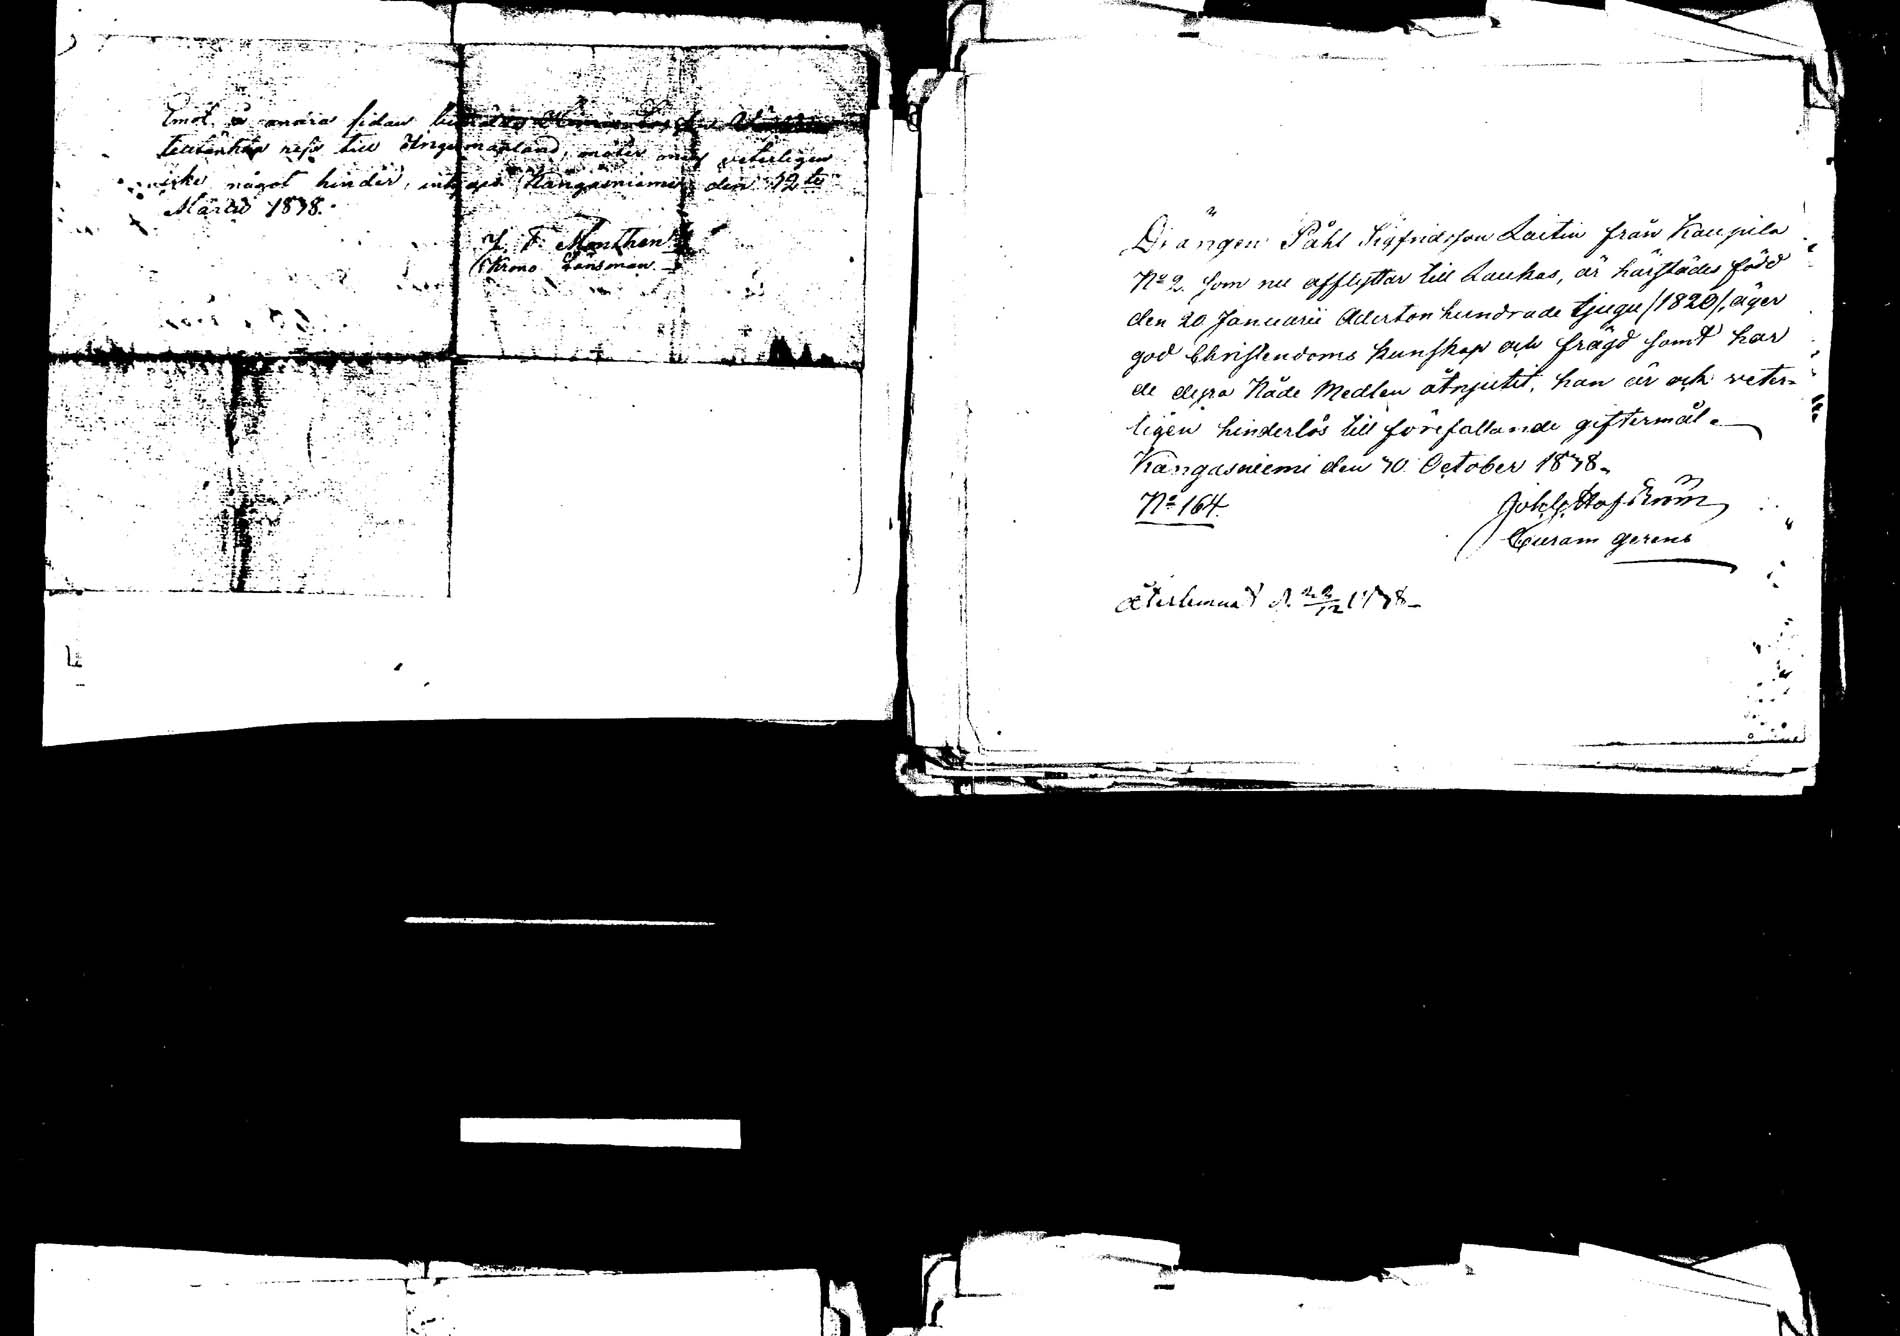 Emot å andra sidan
tillernade resa till Ingermanland, möter mig veterligen
icke något hinder, intygar Kangasniemi den 12te
Martii 1838.
J. F. Monthen
Krono Länsman
Drängen Påhl Sigfridsson Laitin från Kaupila
No 2 som nu afflyttar till Laukas, är härstädes född
den 20 Januarii Adertonhundrade tjugu /1820/, äger
god Christendoms kunskap och frägd samt har
de dyra Nåde Medlen åtnjutit, han är och veter-
ligen hinderlös till förefallande giftermål.
Kangasniemi den 10 October 1838.
No 164.
Curam gerens
Återlemnad d. 22/12 1838